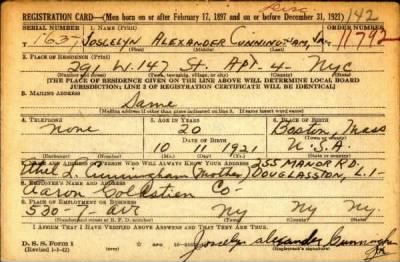 REGISTRATION CARD—(Men born on or after February 17, 1897 and on or before December 31, 1921) 142
SERIAL NUMBER 1. NAME (Print) ORDER NUMBER
T 1637 JOSLELYN ALEXANDER CUNNINGHAM, Jr. 11792
(First) (Middle) (Last)
2. PLACE OF RESIDENCE (Print)
291 W. 147 St. APT. 4- NYC
(Number and street) (Town, township, village, or city) (County) (State)
[THE PLACE OF RESIDENCE GIVEN ON THE LINE ABOVE WILL DETERMINE LOCAL BOARD
JURISDICTION; LINE 2 OF REGISTRATION CERTIFICATE WILL BE IDENTICAL]
3. MAILING ADDRESS
Same
[Mailing address if other than place indicated on line 2. If same insert word same]
4. TELEPHONE 5. AGE IN YEARS 6. PLACE OF BIRTH
None 20 Boston, Mass
DATE OF BIRTH
10 11 1921 U.S.A.
(Exchange) (Number) (Mo.) (Day) (Yr.) (State or country)
7. NAME AND ADDRESS OF PERSON WHO WILL ALWAYS KNOW YOUR ADDRESS 255 MANOR RD.
Ethel L. Cunningham (Mother) DOUGLASSTON, L.I-
8. EMPLOYER'S NAME AND ADDRESS
Aaron Co
9. PLACE OF EMPLOYMENT OR BUSINESS
530-7-Ave Ny Ny Ny
(Number and street or R. F. D. number) (Town) (County) (State)
I AFFIRM THAT I HAVE VERIFIED ABOVE ANSWERS AND THAT THEY ARE TRUE.
D. S. S. Form 1
(Revised 1-1-42) (over) Joselyn Alexander Cunningham Jr
(Registrant's signature)